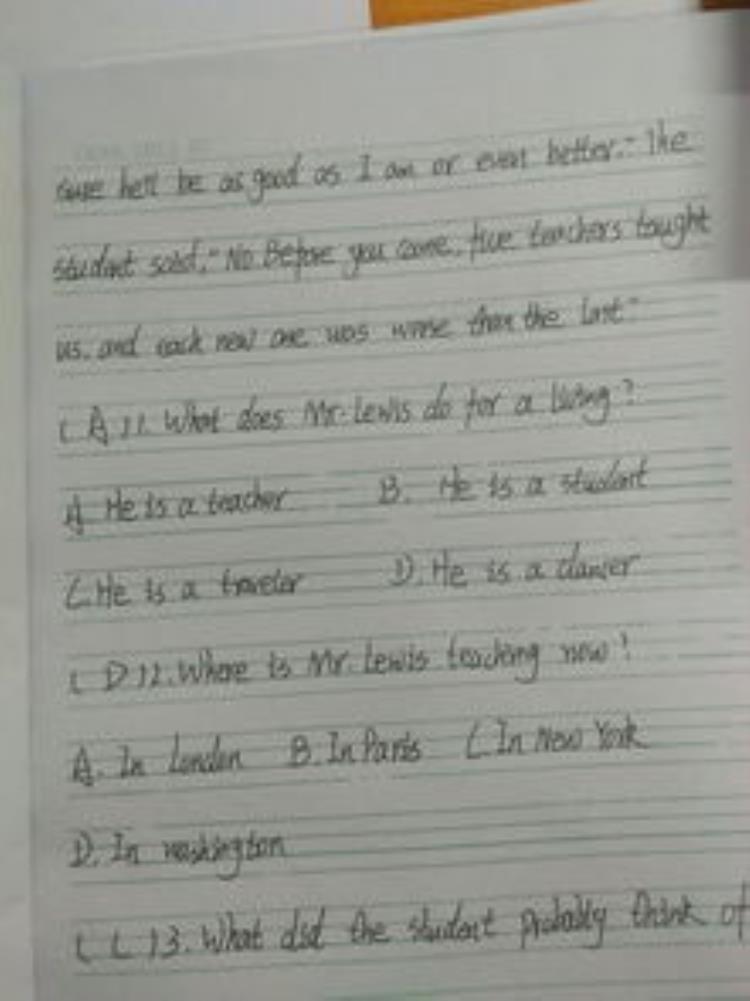 sure he'll be as good as I am or even better." The
student said, "No. Before you came, five teachers taught
us, and each new one was worse than the last"
( A )1. What does Mr. Lewis do for a living?
A. He is a teacher B. He is a student
C. He is a traveler D. He is a dancer
( D )2. Where is Mr. Lewis teaching now?
A. In London B. In Paris C. In New York
D. In washington
( C )3. What did the student probably think of